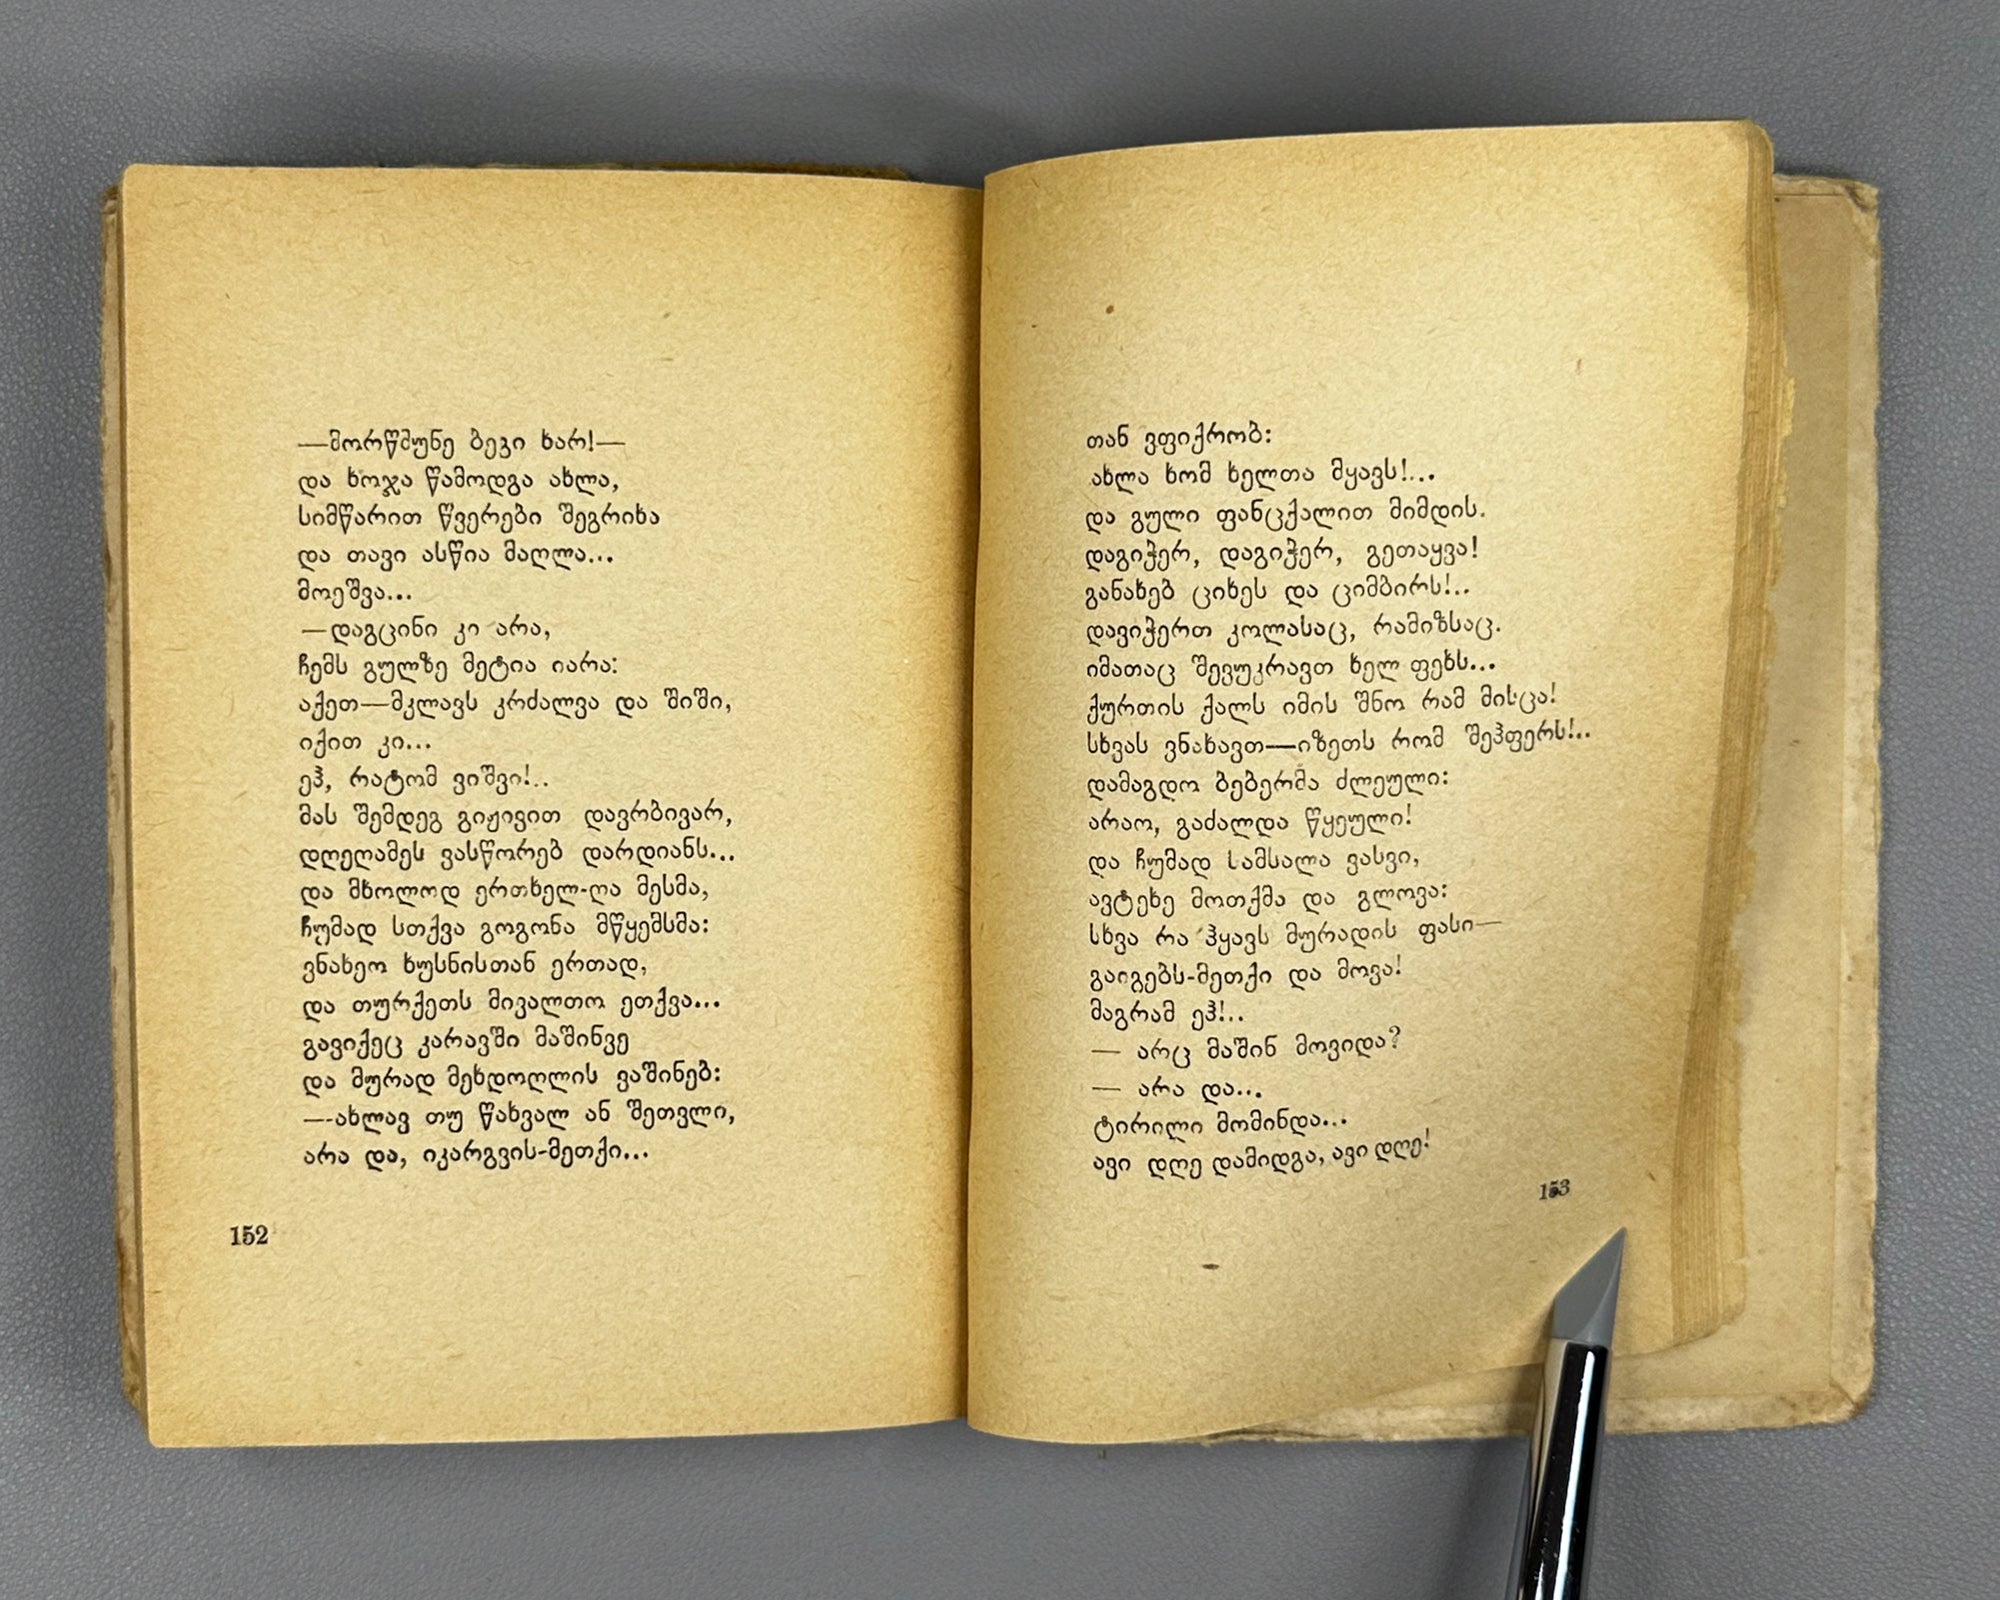 —მორწმუნე ბეგი ხარ!—
და ხოჯა წამოდგა ახლა,
სიმწარით წვერები შეგრიხა
და თავი ასწია მაღლა...
მოეშვა...
—დაგცინი კი არა,
ჩემს გულზე მეტია იარა:
აქეთ—მკლავს კრძალვა და შიში,
იქით კი...
ეჰ, რატომ ვიშვი!..
მას შემდეგ გიჟივით დავრბივარ,
დღეღამეს ვასწორებ დარდიანს...
და მხოლოდ ერთხელ-ღა მესმა,
ჩუმად სთქვა გოგონა მწყემსმა:
ვნახეო ხუსნისთან ერთად,
და თურქეთს მივალთო ეთქვა...
გავიქეც კარავში მაშინვე
და მურად მეხდოღლის ვაშინებ:
—ახლავ თუ წახვალ ან შეთვლი,
არა და, იკარგვის-მეთქი...
152
თან ვფიქრობ:
ახლა ხომ ხელთა მყავს!...
და გული ფანცქალით მიმდის.
დაგიჭერ, დაგიჭერ, გეთაყვა!
განახებ ციხეს და ციმბირს!..
დავიჭერთ კოლასაც, რამიზსაც.
იმათაც შევუკრავთ ხელ ფეხს...
ქურთის ქალს იმის შნო რამ მისცა!
სხვას ვნახავთ—იზეთს რომ შეჰფერს!..
დამაგდო ბებერმა ძლეული:
არაო, გაძალდა წყეული!
და ჩუმად სამსალა ვასვი,
ავტეხე მოთქმა და გლოვა:
სხვა რა ჰყავს მურადის ფასი—
გაიგებს-მეთქი და მოვა!
მაგრამ ეჰ!..
— არც მაშინ მოვიდა?
— არა და...
ტირილი მომინდა...
ავი დღე დამიდგა, ავი დღე!
153